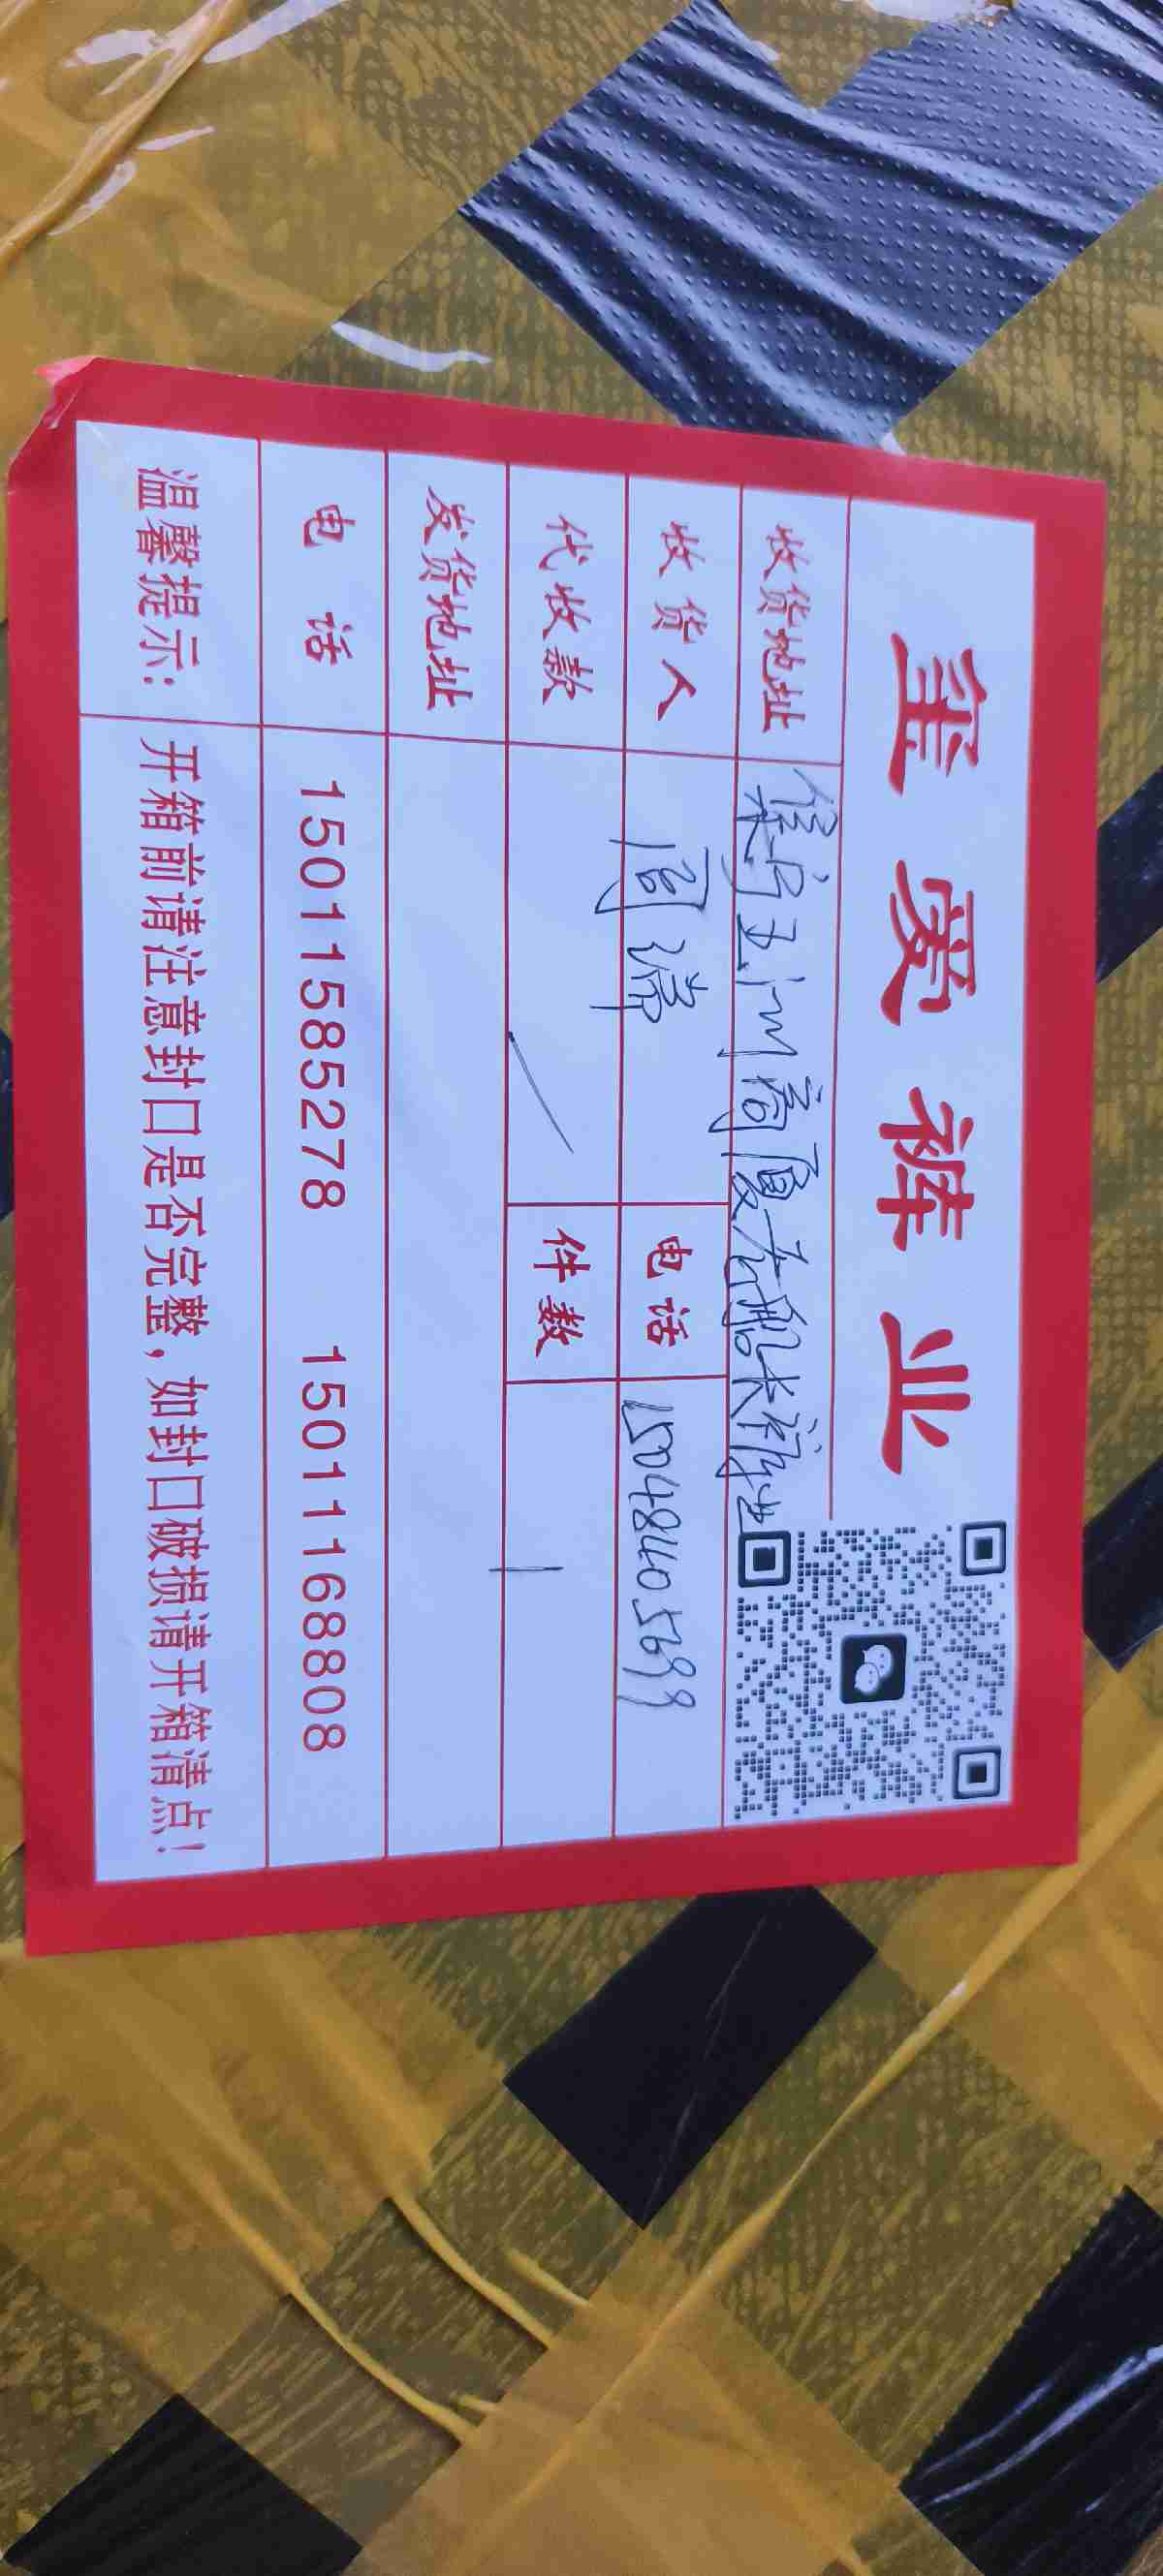 玺爱裤业
收货地址 集宁玉门商厦左酷卡裤业
收货人 闫 电话 15048405699
代收款 件数 1
发货地址
电 话 15011585278 15011168808
温馨提示: 开箱前请注意封口是否完整,如封口破损请开箱清点!